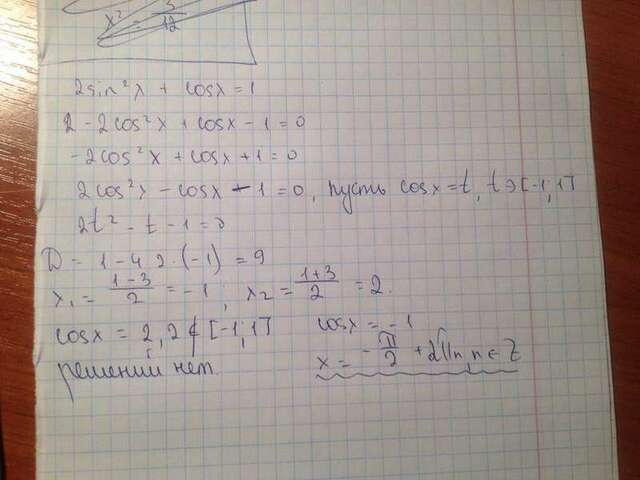 x² = 3/12
2sin²x + cosx = 1
2 - 2cos²x + cosx - 1 = 0
-2cos²x + cosx + 1 = 0
2cos²x - cosx - 1 = 0, пусть cosx = t, t ∋ [-1; 1]
2t² - t - 1 = 0
D = 1 - 4·2·(-1) = 9
x₁ = (1-3)/2 = -1; x₂ = (1+3)/2 = 2.
cosx = 2, 2 ∉ [-1; 1] cosx = -1
решений нет x = -π/2 + 2πn, n ∈ Z